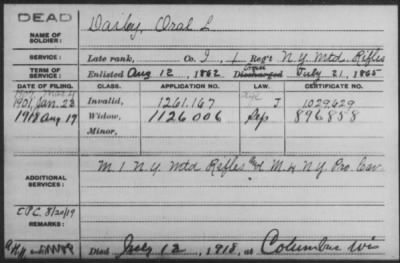 DEAD
NAME OF SOLDIER:
Dailey, Oral L
SERVICE:
Late rank, Co. I, 1 Reg't N.Y. Mtd. Rifles
TERM OF SERVICE:
Enlisted Aug 12, 1862 Discharged July 21, 1865
DATE OF FILING. CLASS. APPLICATION NO. LAW. CERTIFICATE NO.
1901, Jan. 23 Invalid, 1261.167 J 1029.629
1918 Aug 19 Widow, 1126006 Sep 896.858
Minor,
ADDITIONAL SERVICES:
M. I N.Y. Mtd Rifles and M. 4 N.Y. Pro. Cav.
REMARKS:
C.P.C. 8/20/19
Died July 12, 1918, at Columbus Wis